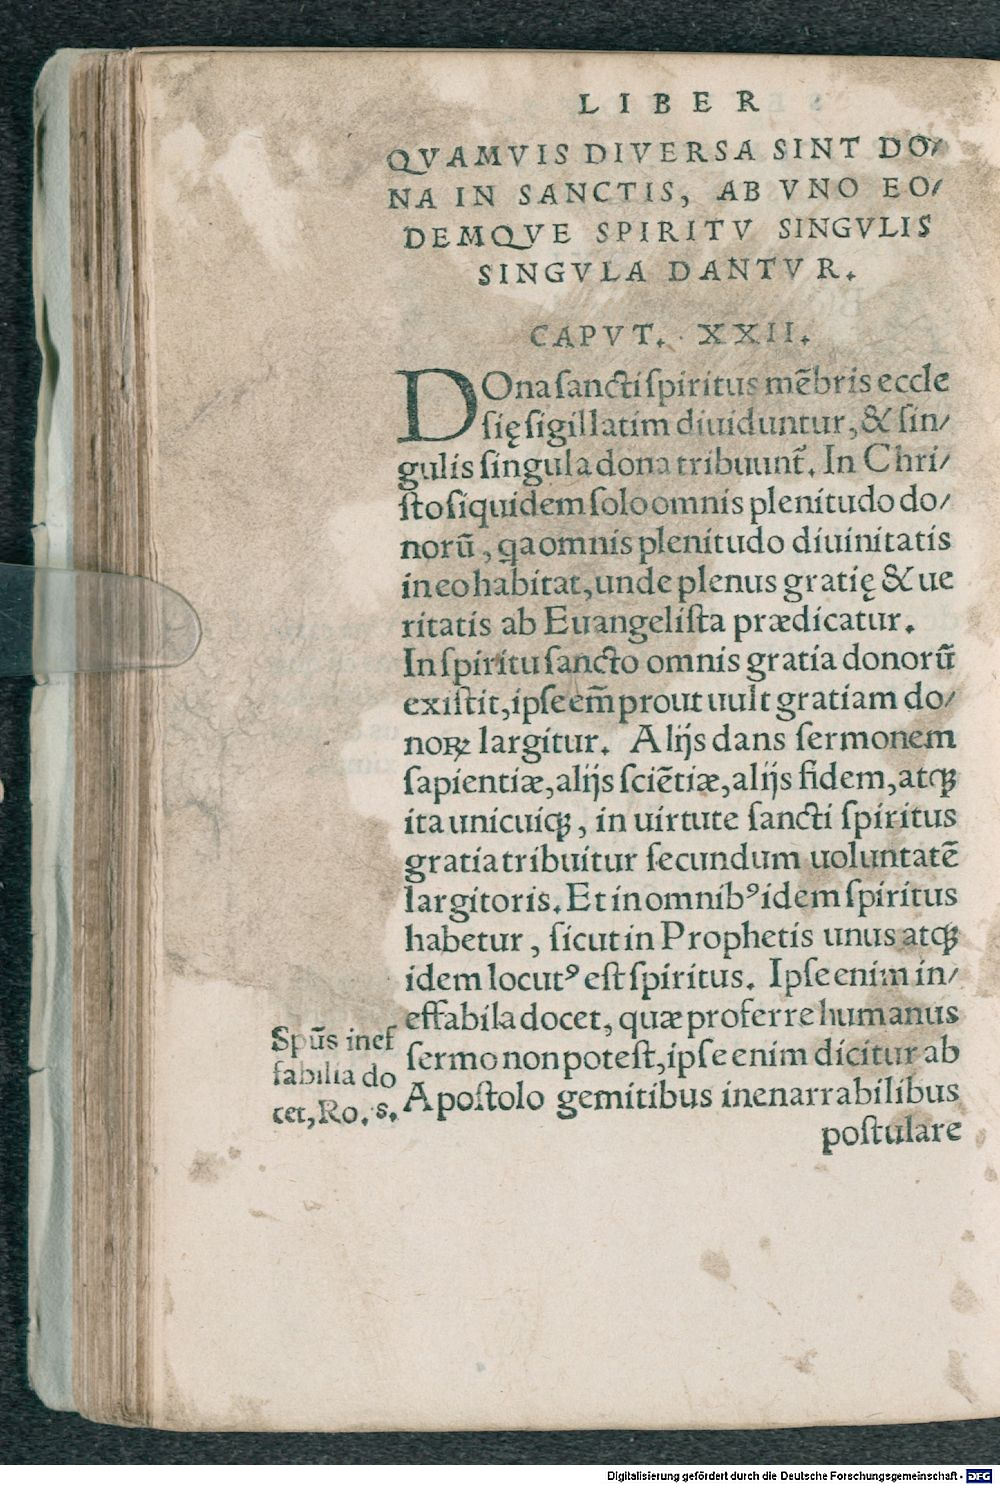 LIBER
QVAMVIS DIVERSA SINT DO/
NA IN SANCTIS, AB VNO EO/
DEMQVE SPIRITV SINGVLIS
SINGVLA DANTVR.
CAPVT. XXII.
DOna sancti spiritus mẽbris eccle
się sigillatim diuiduntur, & sin/
gulis singula dona tribuunt̃. In Chri/
sto siquidem solo omnis plenitudo do/
norũ, qa omnis plenitudo diuinitatis
in eo habitat, unde plenus gratię & ue
ritatis ab Euangelista prædicatur.
In spiritu sancto omnis gratia donorũ
existit, ipse em̃ prout uult gratiam do/
noꝝ largitur. Alijs dans sermonem
sapientiæ, alijs sciẽtiæ, alijs fidem, atqꝫ
ita unicuiqꝫ, in uirtute sancti spiritus
gratia tribuitur secundum uoluntatẽ
largitoris. Et in omnibꝰ idem spiritus
habetur, sicut in Prophetis unus atqꝫ
idem locutꝰ est spiritus. Ipse enim in/
effabila docet, quæ proferre humanus
sermo non potest, ipse enim dicitur ab
Apostolo gemitibus inenarrabilibus
postulare
Spũs inef
fabilia do
cet, Ro. 8.
Digitalisierung gefördert durch die Deutsche Forschungsgemeinschaft - DFG